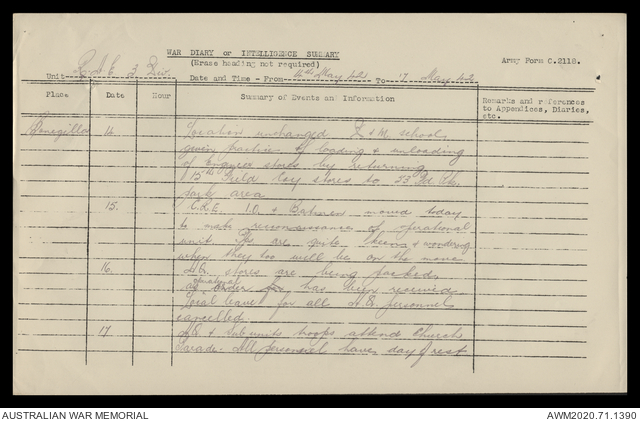 WAR DIARY or INTELLIGENCE SUMMARY
(Erase heading not required)
Army Form C.2118.
Unit R.A.E. 3 Div. Date and Time - From 14th May 42 To 17 May 42
Place Date Hour Summary of Events and Information Remarks and references to Appendices, Diaries, etc.
Bonegilla 14. Location unchanged. & M. school
given practice of loading & unloading
of Engineer stores by returning
15th Field Coy stores to 23 Fd. Pk.
park area
15. C.R.E. I.O. & Batmen moved today
to make reconnaissance of operational
unit. are quite & wondering
when they too will be on the move
16. H.Q. stores are being packed
as order has been received
Local leave for all H.Q. personnel
cancelled
17 H.Q. & Sub units troops attend Church
Parade. All personnel have day of rest
AUSTRALIAN WAR MEMORIAL
AWM2020.71.1390